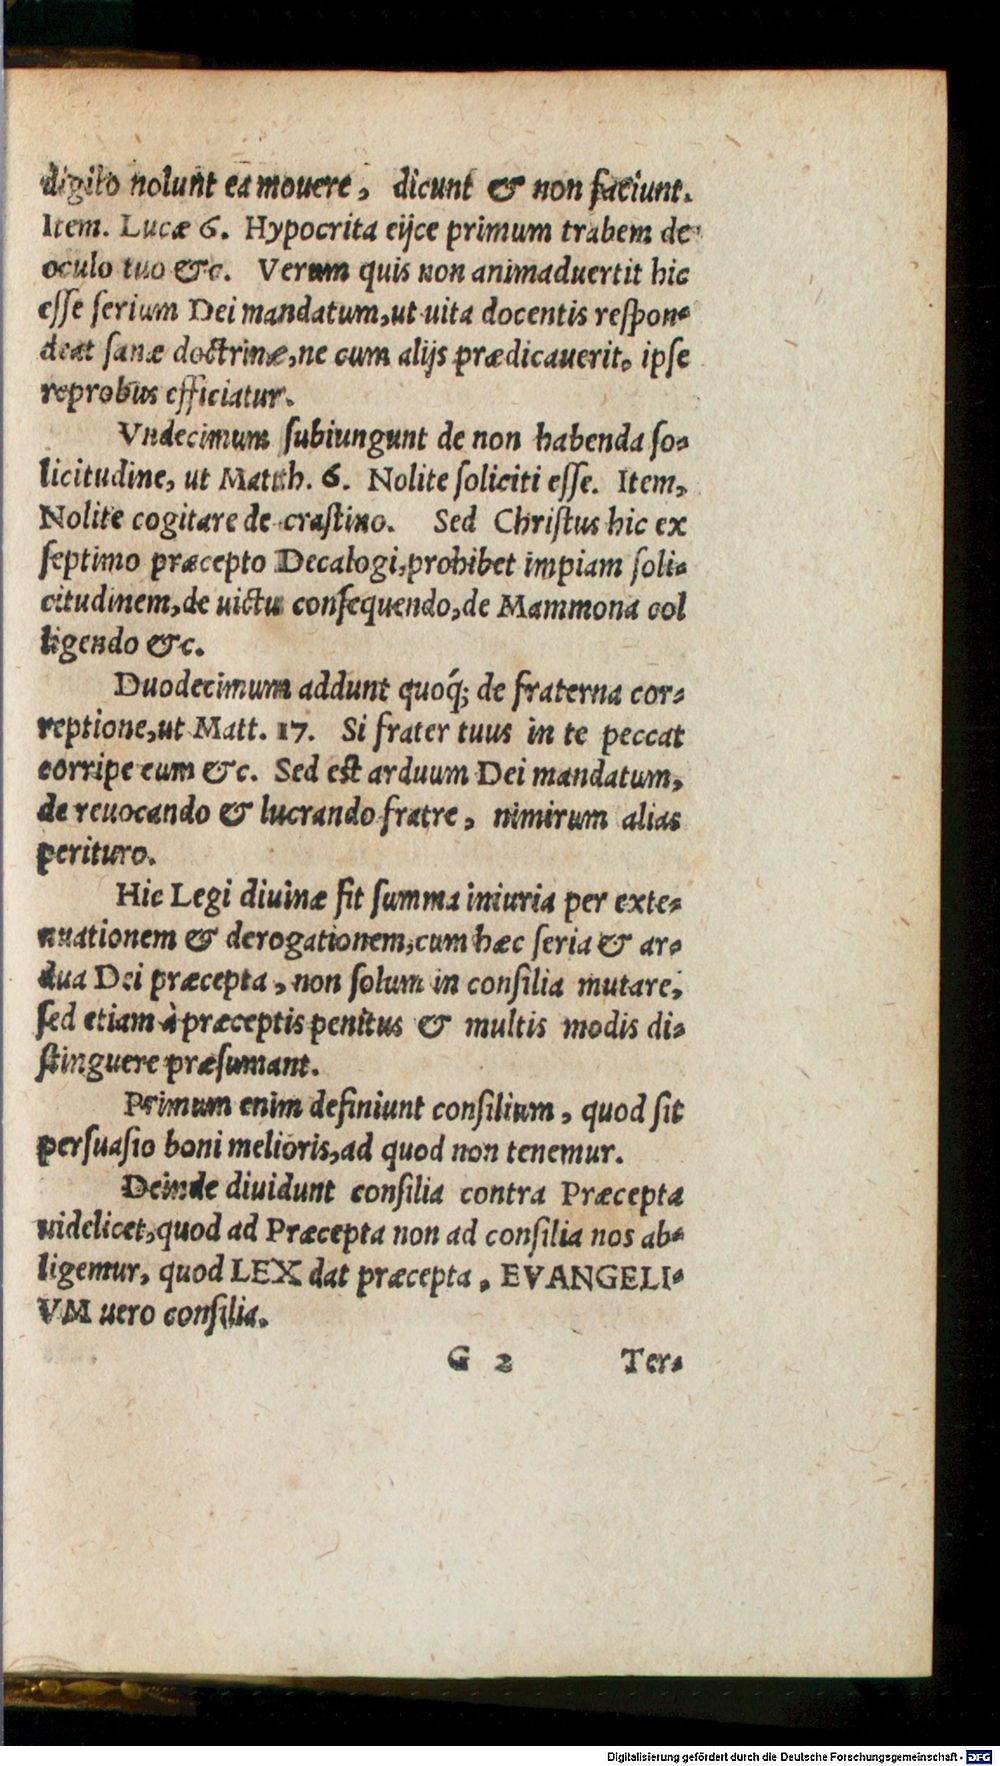 digito nolunt ea mouere, dicunt & non faciunt.
Item. Lucæ 6. Hypocrita eijce primum trabem de
oculo tuo &c. Verum quis non animaduertit hic
esse serium Dei mandatum, ut uita docentis respon-
deat sanæ doctrinæ, ne cum alijs prædicauerit, ipse
reprobus efficiatur.
Vndecimum subiungunt de non habenda so-
licitudine, ut Matth. 6. Nolite soliciti esse. Item,
Nolite cogitare de crastino. Sed Christus hic ex
septimo præcepto Decalogi, prohibet impiam soli-
citudinem, de uictu consequendo, de Mammona col
ligendo &c.
Duodecimum addunt quoq; de fraterna cor-
reptione, ut Matt. 17. Si frater tuus in te peccat
corripe eum &c. Sed est arduum Dei mandatum,
de reuocando & lucrando fratre, nimirum alias
perituro.
Hic Legi diuinæ fit summa iniuria per exte-
nuationem & derogationem, cum hæc seria & ar-
dua Dei præcepta, non solum in consilia mutare,
sed etiam à præceptis penitus & multis modis di-
stinguere præsumant.
Primum enim definiunt consilium, quod sit
persuasio boni melioris, ad quod non tenemur.
Deinde diuidunt consilia contra Præcepta
uidelicet, quod ad Præcepta non ad consilia nos ab-
ligemur, quod LEX dat præcepta, EVANGELI-
VM uero consilia.
G 2 Ter-
Digitalisierung gefördert durch die Deutsche Forschungsgemeinschaft - DFG